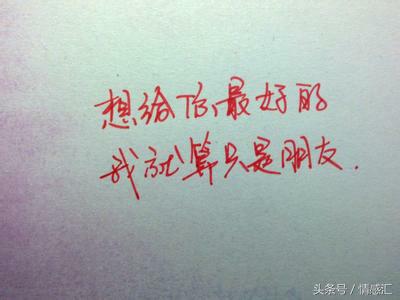 想给你最好的
我就算只是朋友.
头条号 / 情感汇